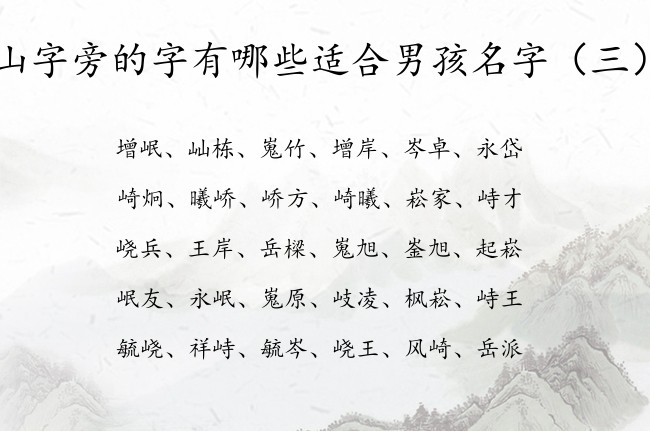 山字旁的字有哪些适合男孩名字（三）
增岷、屾栋、嵬竹、增岸、岑卓、永岱
崎炯、曦峤、峤方、崎曦、崧家、峙才
峣兵、王岸、岳樑、嵬旭、崟旭、起崧
岷友、永岷、嵬原、岐凌、枫崧、峙王
毓峣、祥峙、毓岑、峣王、风崎、岳派